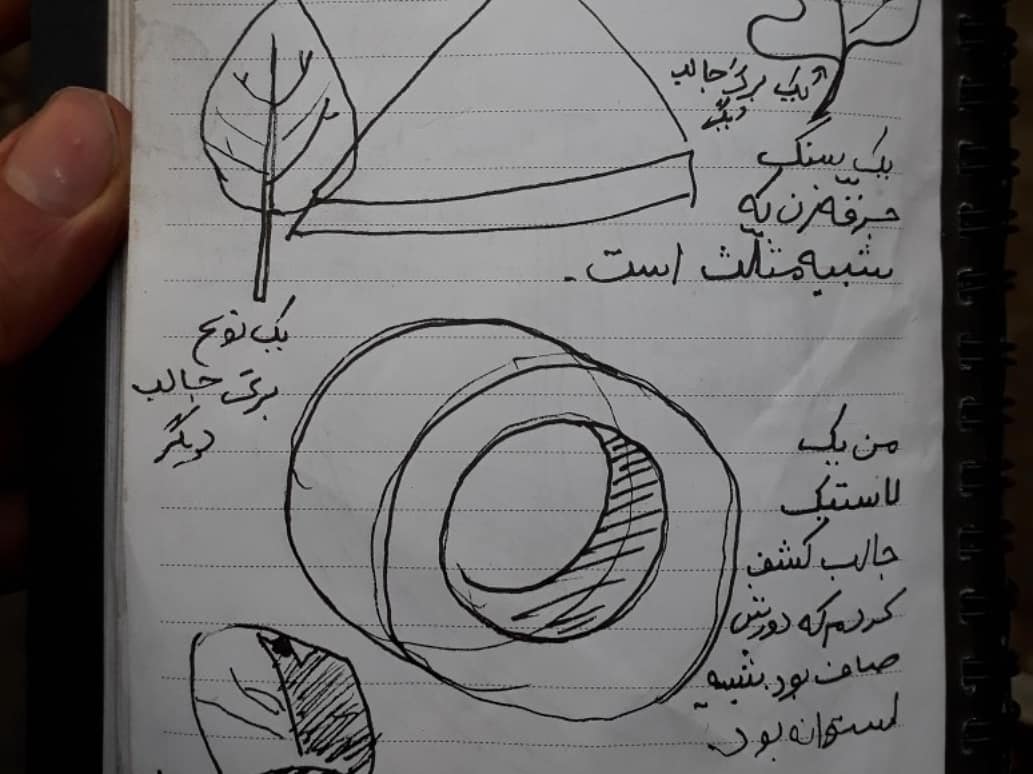 یک برگ جالب
دیگر
یک سنگ
جرقه زن که
شبیه مثلث است.
یک نوع
برگ جالب
دیگر
من یک
لاستیک
جالب کشف
کردم که دورش
صاف بود. شبیه
استوانه بود.